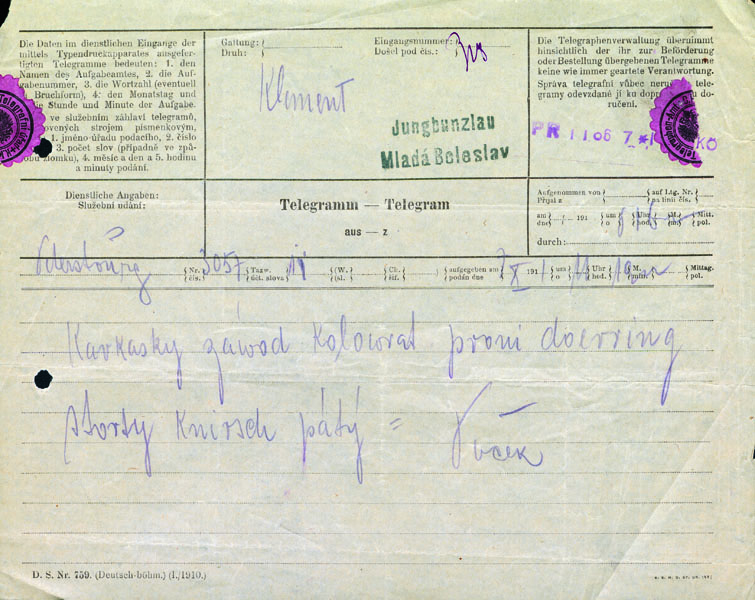 Die Daten im dienstlichen Eingange der
mittels Typendruckapparates ausgefer-
tigten Telegramme bedeuten: 1. den
Namen des Aufgabeamtes, 2. die Auf-
gabenummer, 3. die Wortzahl (eventuell
Bruchform), 4. den Monatstag und
die Stunde und Minute der Aufgabe.
ve služebním záhlaví telegramů,
tovených strojem písmenkovým,
1. jméno úřadu podacího, 2. číslo
3. počet slov (případně ve způ-
sobu zlomku), 4. měsíc a den a 5. hodinu
a minuty podání.
Gattung:
Druh:
Eingangsnummer:
Došel pod čís.:
Klement
Jungbunzlau
Mladá Boleslav
Die Telegraphenverwaltung übernimmt
hinsichtlich der ihr zur Beförderung
oder Bestellung übergebenen Telegramme
keine wie immer geartete Verantwortung.
Správa telegrafní vůbec neručí tele-
gramy odevzdané jí ku dopravě do-
ručení.
PR 11 06 7
Dienstliche Angaben:
Služební udání:
Telegramm — Telegram
aus — z
Aufgenommen von
Přijal z
auf Ltg. Nr.
na linii čís.
am
dne
191
um
o
Uhr
hod.
M.
m.
Mitt.
pol.
durch:
Petersburg
Nr.
čís.
3057
Taxw.
účt. slova
11
(W.
(sl.
Ch.
šif.
aufgegeben am
podán dne
7/XI
191
um
o
11
Uhr
hod.
19
M.
min.
Mittag.
pol.
Kavkasky závod Kolowrat proni doerring
štorty Knirsch pátý = Vuček
D. S. Nr. 759. (Deutsch-böhm.) (I./1910.)